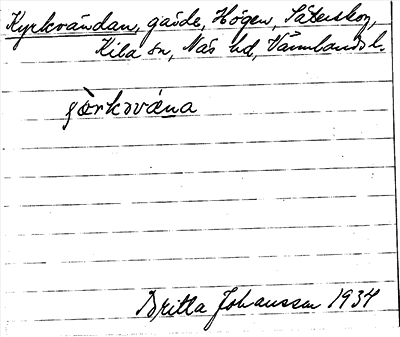 Kyrkvändan, gärde, Högen, Säterskog,
Kila sn, Näs hd, Värmlands l.
Britta Johansson 1934